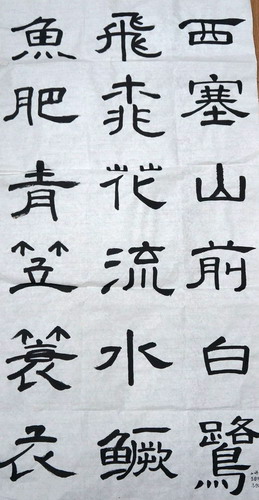 西塞山前白鷺
飛桃花流水鳜
魚肥青笠蓑衣